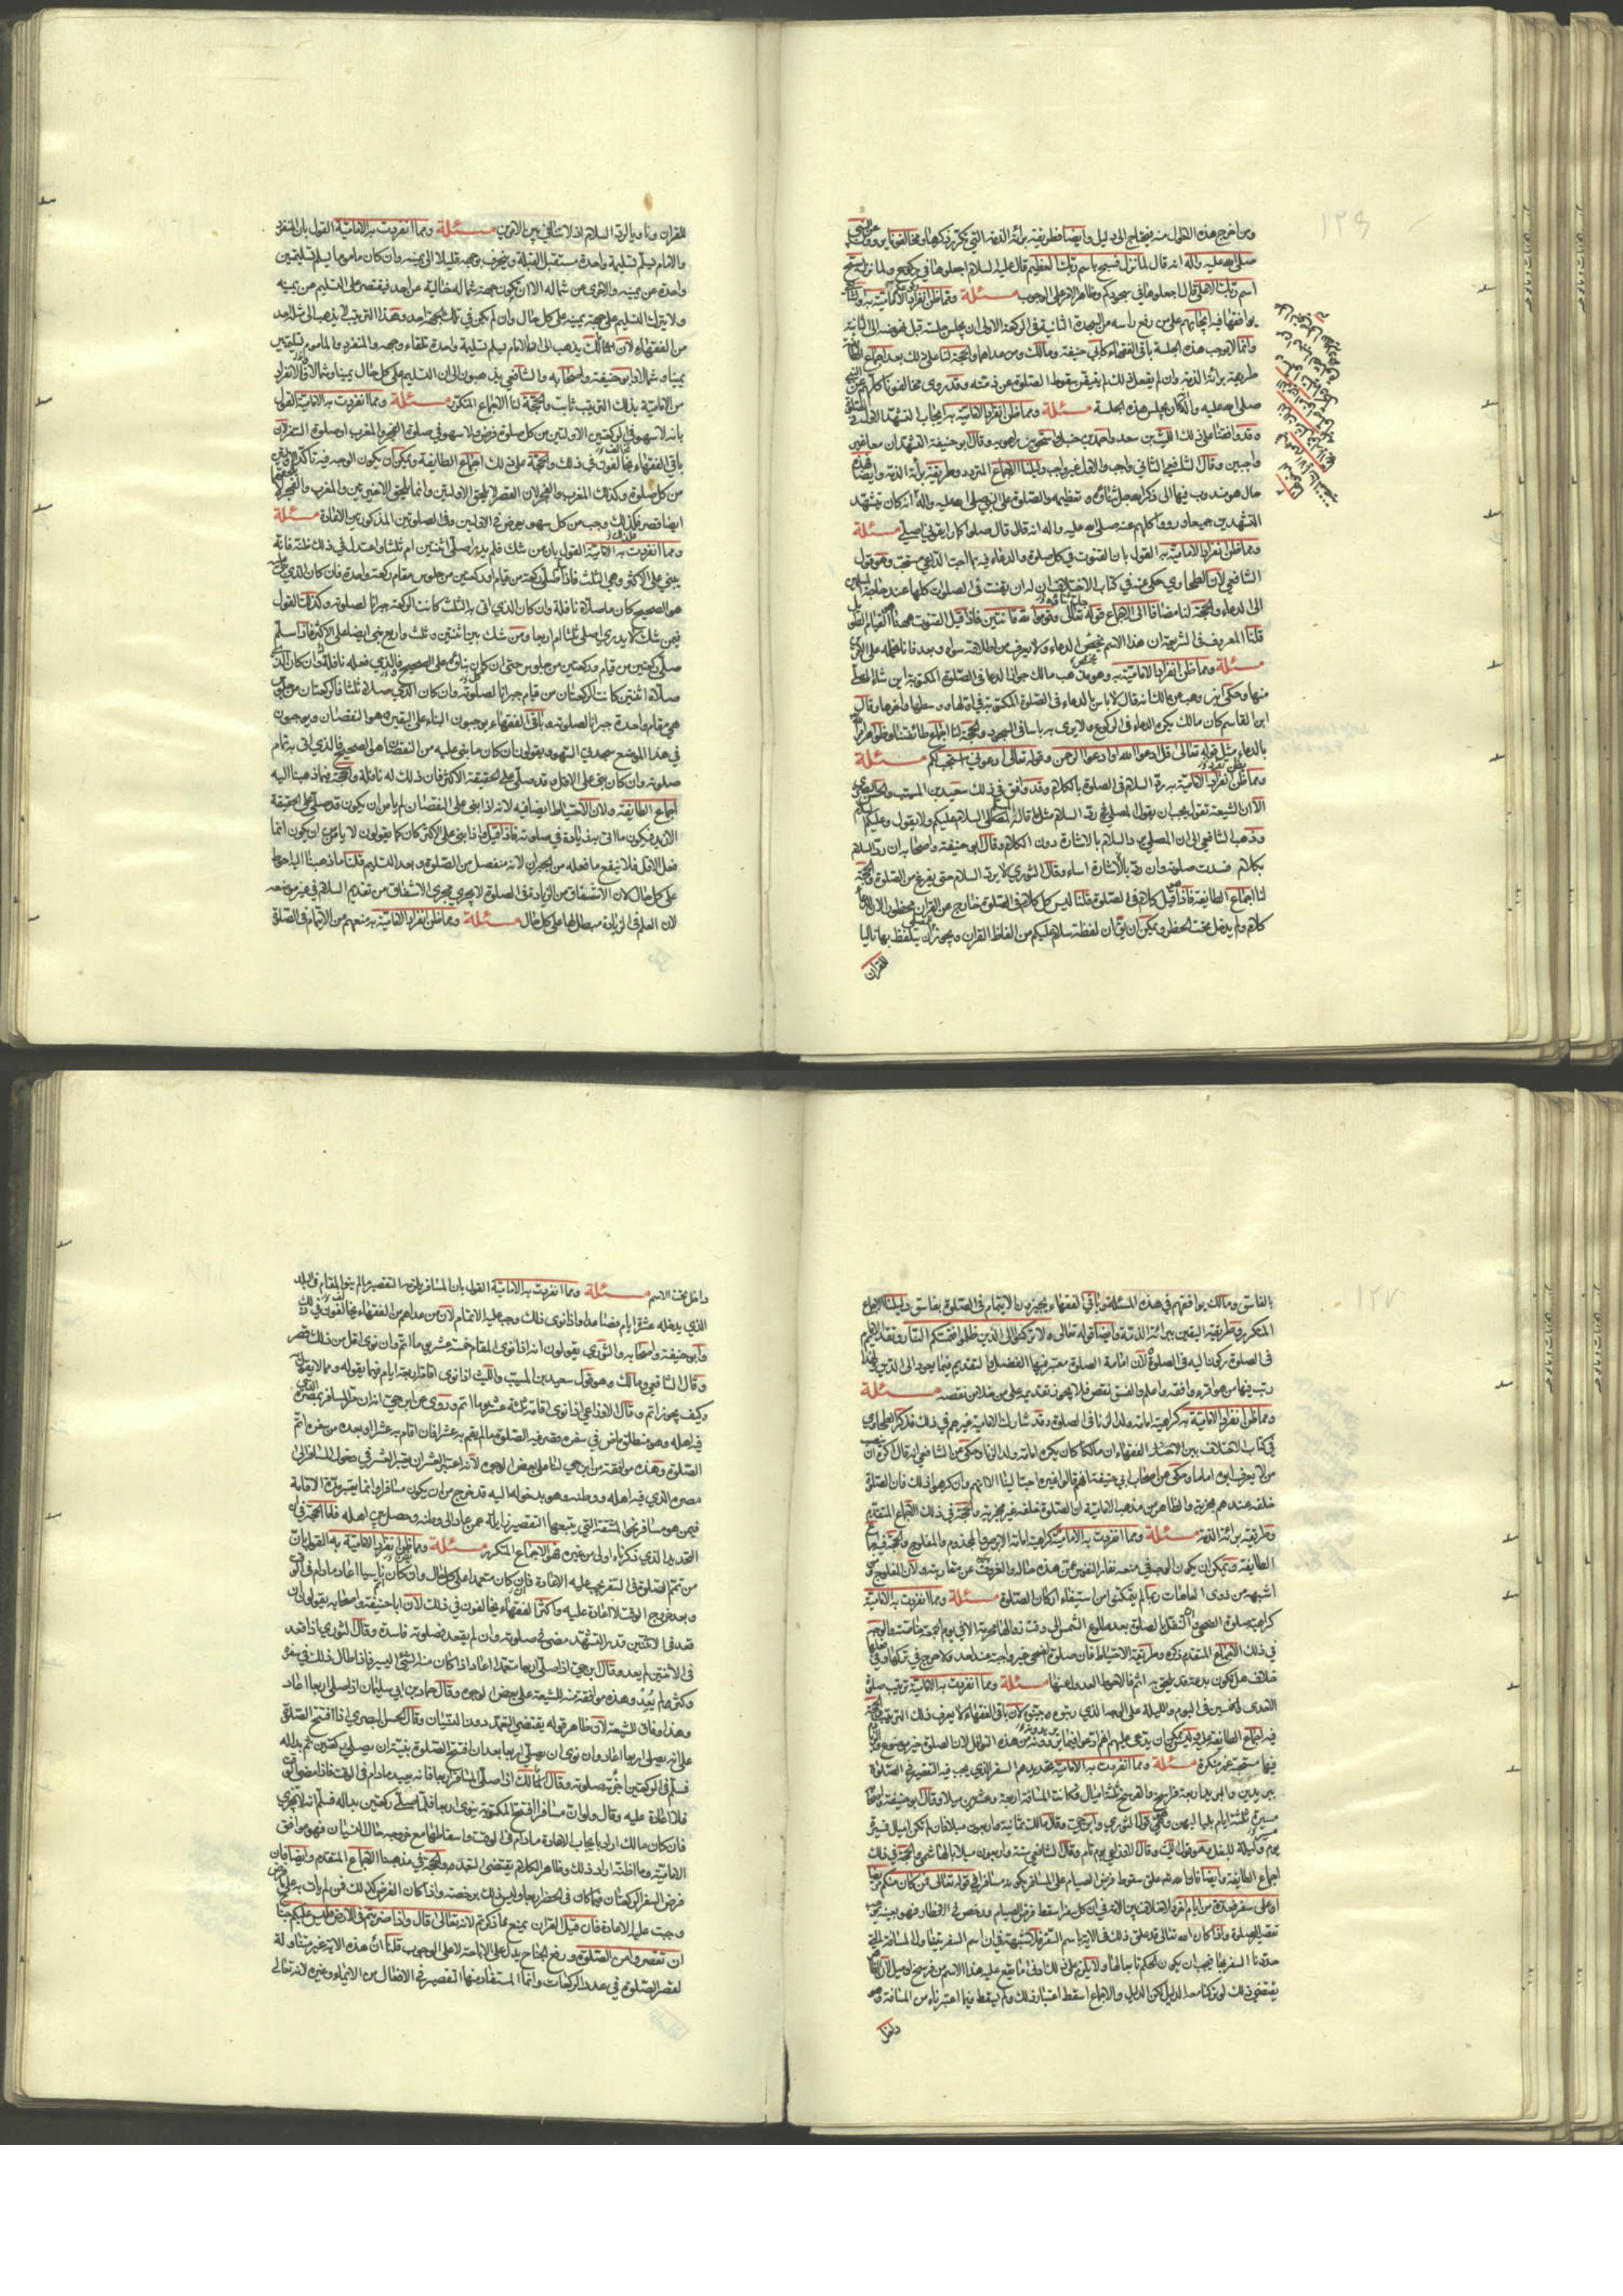 ١٢٦
ومن اخرج هذه الاقوال منه فيحتاج الى دليل وايضا فطريقة برائة الذمة التي تكرر ذكرها ومخالفونا يروون عن النبي
صلى الله عليه وآله انه قال لما نزل فسبح باسم ربك العظيم قال عليه السلام اجعلوها في ركوعكم ولما نزل سبح
اسم ربك الاعلى قال اجعلوها في سجودكم وظاهر الامر على الوجوب مسئلة ومما ظن انفراد الامامية به والشافعي
يوافقها فيه ايجابهم على من رفع راسه من السجدة الثانية في الركعة الاولى ان يجلس جلسة قبل نهوضه الى الثانية
وانما لا يوجب هذه الجلسة باقي الفقهاء كابي حنيفة ومالك ومن عداهما والحجة لنا على ذلك بعد اجماع الطائفة
طريقة برائة الذمة وان لم يفعل ذلك لم يتيقن سقوط الصلوة عن ذمته وقد روى مخالفونا كلهم عن النبي
صلى الله عليه وآله انه كان يجلس هذه الجلسة مسئلة ومما ظن انفراد الامامية به ايجاب التشهد الاول في الصلوة
وقد وافقنا على ذلك الليث بن سعد واحمد بن حنبل واسحق بن راهويه وقال ابو حنيفة التشهدان معا غير
واجبين وقال الشافعي الثاني واجب والاول غير واجب دليلنا الاجماع المتردد وطريقة برائة الذمة وايضا فهذه
حال هو مندوب فيها الى ذكر الله جل ثناؤه وتعظيمه والصلوة على النبي صلى الله عليه وآله انه كان يتشهد
التشهدين جميعا ورووا كلهم عنه صلى الله عليه وآله انه قال صلوا كما رايتموني اصلي مسئلة
ومما ظن انفراد الامامية به القول بان القنوت في كل صلوة والدعاء فيه بما احب الداعي مستحب وهو قول
الشافعي لان الطحاوي حكى عنه في كتاب الاختلاف ان له ان يقنت في الصلوات كلها عند حاجة المسلمين
الى الدعاء والحجة لنا مضافا الى الاجماع قوله تعالى وقوموا لله قانتين فاذا قيل القنوت هيهنا القيام الطويل
قلنا المعروف في الشريعة ان هذا الاسم يختص الدعاء ولا يعرف من اطلاقه سواه وبعد فانا نحمله على الامرين
مسئلة ومما ظن انفراد الامامية به وهو مذهب مالك جواز الدعاء في الصلوة المكتوبة اين شاء المصلي
منها وحكى ابن وهب عن مالك انه قال لا باس بالدعاء في الصلوة المكتوبة في اولها ووسطها واخرها وقال
ابن القاسم كان مالك يكره الدعاء في الركوع ولا يرى به باسا في السجود والحجة لنا اجماع طائفتنا وظواهر الامر
بالدعاء مثل قوله تعالى قل ادعوا الله او ادعوا الرحمن وقوله تعالى ادعوني استجب لكم مسئلة
ومما ظن انفراد الامامية به رد السلام في الصلوة بالكلام وقد وافق في ذلك سعيد بن المسيب والحسن البصري
الا ان الشيعة تقول يجب ان يقول المصلي في رد السلام مثل ما قال له المسلم السلام عليكم ولا يقول وعليكم السلام
وذهب الشافعي الى ان المصلي يرد السلام بالاشارة دون الكلام وقال ابو حنيفة واصحابه ان رد السلام
بكلام فسدت صلوته وان رد بالاشارة اساء وقال الثوري لا يرد السلام حتى يفرغ من الصلوة والحجة
لنا اجماع الطائفة فاذا قيل كلام في الصلوة قلنا ليس كل كلام في الصلوة خارج عن القران محظور
كلام ولم يدخل تحت الحظر ويمكن ان يق ان لفظة سلام عليكم من الفاظ القران ويجوز ان يتلفظ بها تاليا
للقران
للقران وناويا لرد السلام اذ لا تنافي بين الامرين مسئلة ومما انفردت به الامامية القول بان المنفرد
والامام يسلم تسليمة واحدة مستقبل القبلة وينحرف بوجهه قليلا الى يمينه وان كان ماموما يسلم تسليمتين
واحدة عن يمينه والاخرى عن شماله الا ان تكون جهة شماله خالية من احد فيقتصر على التسليم عن يمينه
ولا يترك التسليم على جهة يمينه على كل حال وان لم يكن في تلك الجهة احد وهذا الترتيب لا يذهب الى مثله احد
من الفقهاء لان مالك يذهب الى ان الامام يسلم تسليمة واحدة تلقاء وجهه والمنفرد والماموم تسليمتين
يمينا وشمالا وابو حنيفة واصحابه والشافعي يذهبون الى ان التسليم على كل حال يمينا وشمالا فالانفراد
من الامامية بذلك الترتيب ثابت والحجة لنا الاجماع المتكرر مسئلة ومما انفردت به الامامية القول
بانه لا سهو في الركعتين الاولتين من كل صلوة فرض ولا سهو في صلوة الفجر والمغرب او صلوة السفر لان
باقي الفقهاء يخالفون في ذلك والحجة على ذلك اجماع الطايفة ويمكن ان يكون الوجه فيه تاكد
من كل صلوة وكذلك المغرب والفجر لان القصر لا يلحق الاولتين وانما يلحق الاخيرتين والمغرب والفجر لا
ايضا قصر فكذلك وجب من كل سهو يعرض في الاولتين وفي الصلوتين المذكورتين الاعادة مسئلة
ومما انفردت به الامامية القول بان من شك فلم يدر اصلى اثنتين ام ثلثا واعتدل في ذلك ظنه فانه
يبني على الاكثر وهي الثلث فاذا سلم صلى ركعة من قيام او ركعتين من جلوس مقام ركعة واحدة فان كان الذي بنى عليه
هو الصحيح كان ما صلاه نافلة وان كان الذي اتى به الثلث كانت الركعة جبرانا لصلوته وكذلك القول
فيمن شك لا يدري اصلى ثلثا ام اربعا ومن شك بين اثنتين وثلث واربع بنى ايضا على الاكثر فاذا سلم
صلى ركعتين من قيام وركعتين من جلوس حتى ان كان بناؤه على الصحيح فالذي فعله نافلة وان كان الذي
صلاه اثنتين كانت الركعتان من قيام جبرانا لصلوته وان كان الذي صلاه ثلثا فالركعتان من جلوس
هي مقام واحدة جبرانا لصلوته وباقي الفقهاء يوجبون البناء على اليقين وهو النقصان ويوجبون
في هذا الموضع سجدتي السهو ويقولون ان كان ما بنى عليه من النقصان هو الصحيح فالذي اتى به تمام
صلوته وان كان بنى على الاقل وقد صلى على الحقيقة الاكثر فان ذلك له نافلة والحجة فيما ذهبنا اليه
اجماع الطايفة ولان الاحتياط ايضا فيه لانه اذا بنى على النقصان لم يامن ان يكون قد صلى على الحقيقة
الازيد فيكون ما اتى به زيادة في صلوته فاذا قيل واذا بنى على الاكثر كان كما يقولون لا يامن ان يكون انما
فعل الاقل فلا ينفع ما فعله من الجبران لانه منفصل من الصلوة وبعد التسليم قلنا ما ذهبنا اليه احوط
على كل حال لان الاشفاق من الزيادة في الصلوة لا يجري مجرى الاشفاق من تقديم السلام في غير موضعه
لان العلم في الزيادة مبطل لها على كل حال مسئلة ومما ظن انفراد الامامية به منعهم من الائتمام في الصلوة
١٢٧
بالفاسق ومالك يوافقهم في هذه المسئلة وباقي الفقهاء يجيزون الائتمام في الصلوة بفاسق دليلنا الاجماع
المتكرر وطريقة اليقين ببرائة الذمة وايضا قوله تعالى ولا تركنوا الى الذين ظلموا فتمسكم النار وتقديم الامام
في الصلوة ركون اليه في الصلوة لان امامة الصلوة معتبر فيها الفضل والتقديم فيما يعود الى الدين ولهذا
رتب فيها من هو اقرء وافقه واعلم والفسق نقص فلا يجوز تقديمه على من خلا من نقصه مسئلة
ومما ظن انفراد الامامية به كراهية امامة ولد الزنا في الصلوة وقد شارك الامامية غيرهم في ذلك فذكر الطحاوي
في كتاب الاختلاف بين الفقهاء ان مالكا كان يكره امامة ولد الزنا وحكى عن الشافعي انه قال اكره ان ينصب
من لا يعرف ابوه اماما وحكى عن اصحاب ابي حنيفة انهم قالوا غيره احب الينا الا انهم وان كرهوا ذلك فان الصلوة
خلفه عندهم مجزية والظاهر من مذهب الامامية ان الصلوة خلفه غير مجزية والحجة في ذلك الاجماع المتقدم
وطريقة برائة الذمة مسئلة ومما انفردت به الامامية كراهية امامة الابرص والمجذوم والمفلوج والحجة فيه اجماع
الطايفة ويمكن ان يكون الوجه في منعه نفار النفوس عمن هذه حاله والعزوف عن مقاربته ولان المفلوج ومن
اشبهه من ذوى العاهات ربما لم يتمكنوا من استيفاء اركان الصلوة مسئلة ومما انفردت به الامامية
كراهية صلوة الضحى وان التنفل بالصلوة بعد طلوع الشمس الى وقت زوالها محرمة الا في يوم الجمعة خاصة والوجه
في ذلك الاجماع المتقدم ذكره وطريقة الاحتياط فان صلوة الضحى غير واجبة عند احد ولا حرج في تركها وفي فعلها
خلاف هل يكون بدعة قد يلحق به اثم فالاحوط العدول عنها مسئلة ومما انفردت به الامامية ترتيب صلوة
الفدى الخمسين في اليوم والليلة على الوجه الذي رتبوه وبينوه لان باقي الفقهاء لا يعرف ذلك الترتيب والحجة
فيه اجماع الطائفة عليه وليس يمكن ان يدعى عليهم انهم ابتدعوا فيما يزيدونه من هذه النوافل لان الصلوة خير موضوع والزيادة
فيها مستحبة غير منكرة مسئلة ومما انفردت به الامامية تحديدهم السفر الذي يجب فيه التقصير في الصلوة
ببريدين والبريد اربعة فراسخ والفرسخ ثلثة اميال فكانت المسافة اربعة وعشرين ميلا وقال ابو حنيفة واصحابه
مسيرة ثلثة ايام بلياليهن وهو قول الثوري وابن حي وقال مالك ثمانية واربعون ميلا فان لم تكن اميال فمسيرة
يوم وليلة للبغل وهو قول الليث وقال الاوزاعي يوم تام وقال الشافعي ستة واربعون ميلا بالهاشمي والحجة في ذلك
اجماع الطائفة وايضا فان الله علق سقوط فرض الصيام على المسافر بكونه مسافرا في قوله تعالى فمن كان منكم مريضا
او على سفر فعدة من ايام اخر ولا اختلاف بين الامة في ان كل سفر اسقط فرض الصيام ورخص في الافطار فهو بعينه موجب
تقصير الصلوة واذا كان الله تعالى قد علق ذلك في الاية باسم السفر فلا شبهة في ان اسم السفر يتناول المسافة التي
حددنا السفر بها فيجب ان يكون الحكم تابعا لها ولا يلزم على ذلك ادنى ما يقع عليه هذا الاسم من فرسخ او ميل لان الظاهر
يقتضي ذلك لو تركنا معه الدليل لكن الدليل والاجماع اسقط اعتبار ذلك ولم يسقط فيما اعتبرناه من المسافة وهو
داخل
داخل تحت الاسم مسئلة ومما انفردت به الامامية القول بان المسافر يلزمه التقصير ما لم ينو المقام في البلد
الذي يدخله عشرة ايام فصاعدا واذا نوى ذلك وجب عليه الاتمام لان من عداهم من الفقهاء يخالفون في ذلك
وابو حنيفة واصحابه والثوري يقولون انه اذا نوى المقام خمسة عشر يوما اتم وان نوى اقل من ذلك قصر
وقال الشافعي ومالك وهو قول سعيد بن المسيب والليث اذا نوى اقامة اربعة ايام
وقال الاوزاعي اذا نوى اقامة ثلثة عشر يوما اتم وروى عن ابن حي انه ان مر المسافر بمصره الذي
فيه اهله وهو منطلق ماض في سفره قصر فيه الصلوة ما لم يقم به عشرا فان اقام به عشرا او بعده من سفره اتم
الصلوة وهذه موافقة من ابن حي لنا على بعض الوجوه لانه اعتبر العشر لكن نعتبر العشر في دخول المسافر الى
مصره الذي فيه اهله ووطنه وهو بدخوله اليه قد خرج من ان يكون مسافرا وانما يعتبر مدة الاقامة
فيمن هو مسافر نحو المشقة التي يتبعها التقصير زايلة عمن عاد الى وطنه وحصل بين اهله فاما الحجة في ان
التحديد الذي ذكرناه اولى من غيره فهو الاجماع المتكرر مسئلة ومما ظن انفراد الامامية به القول بان
من تمم الصلوة في السفر يجب عليه الاعادة فان كان متعمدا على كل حال وان كان ناسيا اعاد ما دام في الوقت
وبعد خروج الوقت لا اعادة عليه واكثر الفقهاء يخالفون في ذلك لان ابا حنيفة واصحابه يقولون ان
قعد في الاثنتين قدر التشهد مضى في صلوته وان لم يقعد فصلوته فاسدة وقال الثوري اذا قعد
في الاثنتين لم يعد وقال ابن حي اذا صلى اربعا متعمدا اعاد اذا كان منه الشئ اليسير فاذا طال ذلك في سفره
وكثر لم يعد وهذه موافقة منه للشيعة على بعض الوجوه وقال حماد بن ابي سليمان اذا صلى اربعا اعاد
وهذا وفاق للشيعة لان ظاهر قوله يقتضي التعمد دون النسيان وقال الحسن البصري اذا افتتح الصلوة
على انه يصلى اربعا اعاد وان نوى ان يصلي اربعا بعد ان افتتح الصلوة بنية ان يصلي ركعتين ثم بدا له
فسلم في الركعتين اجزته صلوته وقال مالك اذا صلى المسافر اربعا فانه يعيد ما دام في الوقت فاذا مضى الوقت
فلا اعادة عليه وقال ولو ان مسافرا افتتح المكتوبة ينوى اربعا فلما صلى ركعتين بدا له فسلم انه لا يجزي
فان كان مالك اراد بايجاب الاعادة ما دام في الوقت واسقاطها مع خروجه حال النسيان فهو موافق
الامامية وما اظنه اراد ذلك وظاهر الكلام يقتضي التعمد والحجة في مذهبنا الاجماع المتقدم وايضا فان
فرض السفر الركعتان فيما كان في الحضر اربعا وليس ذلك برخصة واذا كان الفرض كذلك فمن لم يات به على
وجبت عليه الاعادة فان قيل القران يمنع مما ذكرتم لانه تعالى قال واذا ضربتم في الارض فليس عليكم جناح
ان تقصروا من الصلوة ورفع الجناح يدل على الاباحة لا على الوجوب قلنا ان هذه الاية غير متناولة
لقصر الصلوة في عدد الركعات وانما المستفاد منها التقصير في الافعال من الايماء وغيره لانه تعالى